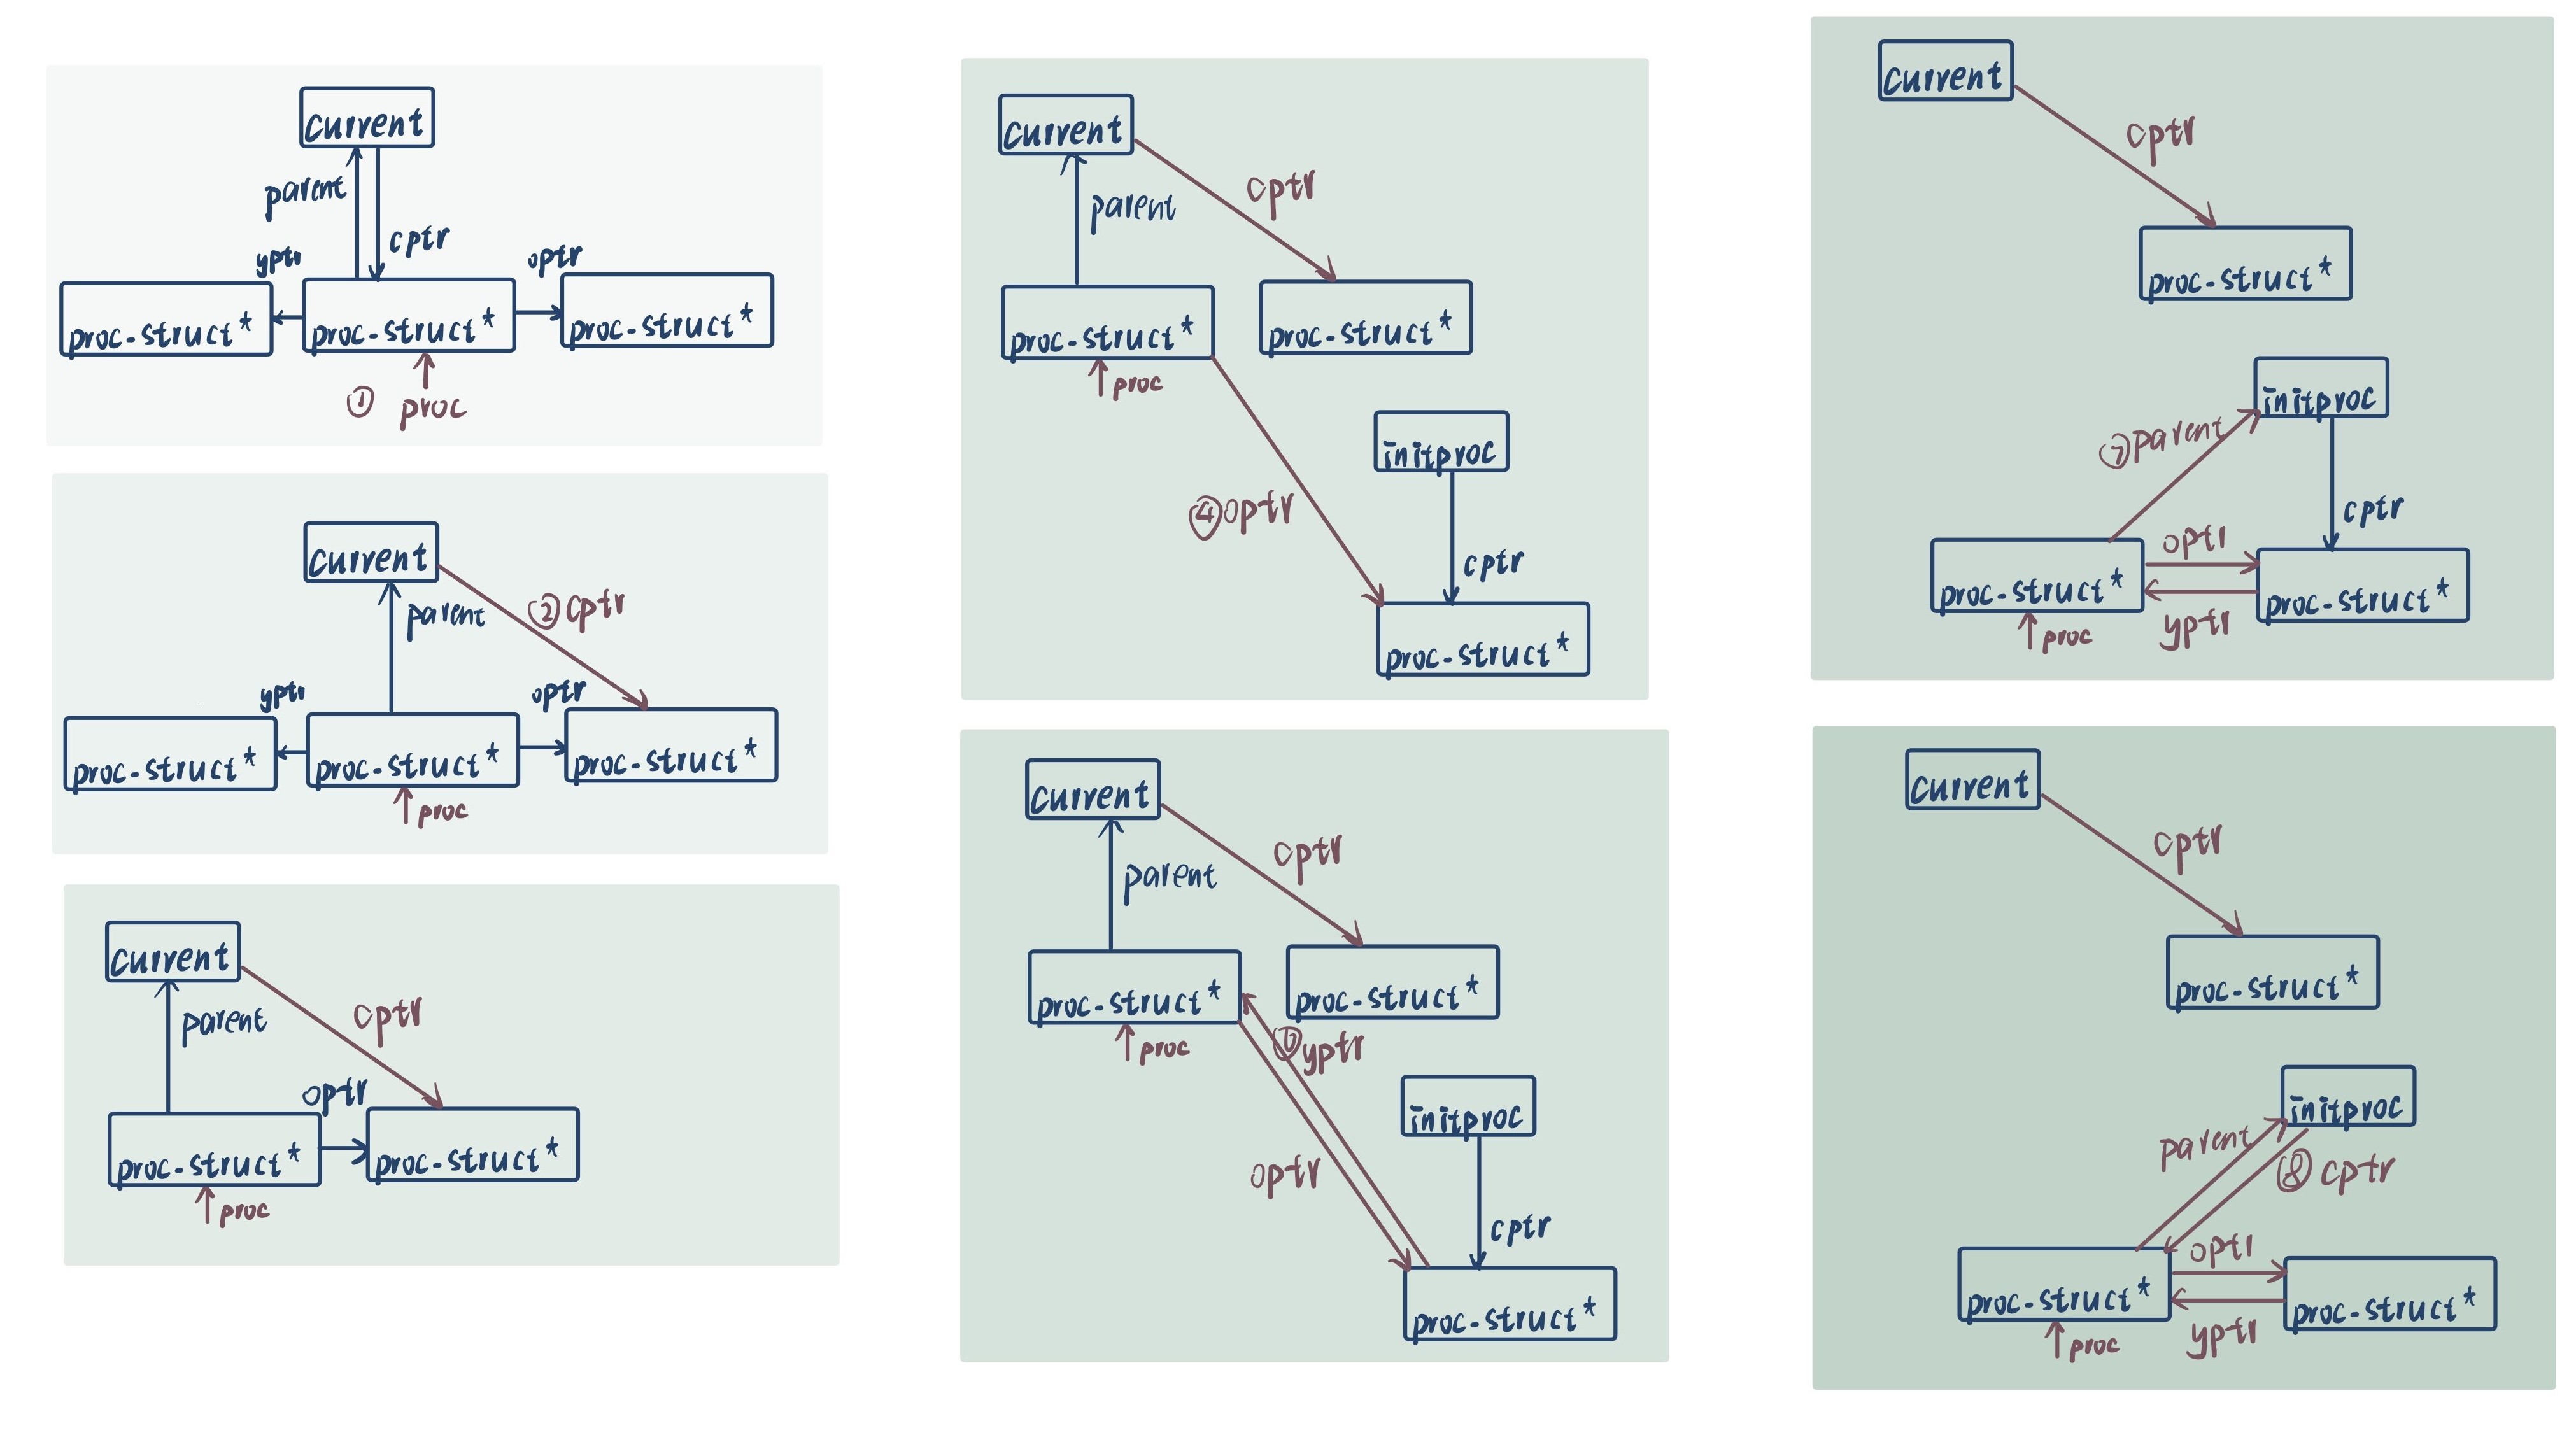 current
parent
cptr
yptr
optr
proc-struct*
proc-struct*
proc-struct*
① proc
current
parent
②cptr
yptr
optr
proc-struct*
proc-struct*
proc-struct*
proc
current
parent
cptr
optr
proc-struct*
proc-struct*
proc
current
cptr
parent
proc-struct*
proc-struct*
proc
initproc
④optr
cptr
proc-struct*
current
cptr
parent
proc-struct*
proc-struct*
proc
⑥yptr
initproc
optr
cptr
proc-struct*
current
cptr
proc-struct*
initproc
⑦parent
cptr
optr
proc-struct*
proc-struct*
proc
yptr
current
cptr
proc-struct*
initproc
parent
⑧cptr
optr
proc-struct*
proc-struct*
proc
yptr